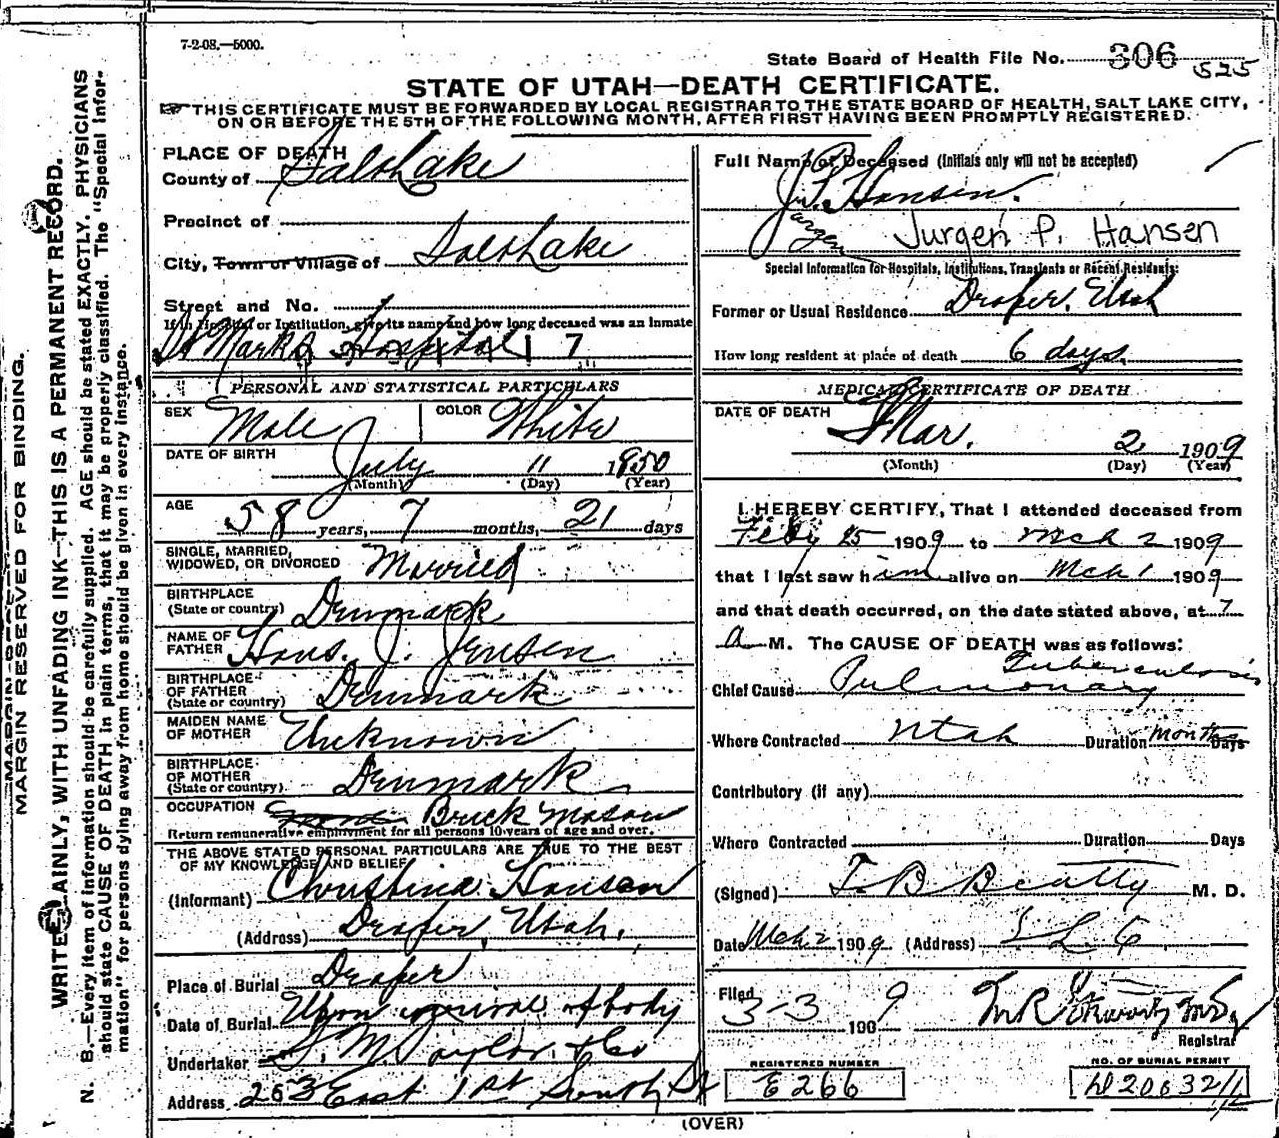 7-2-08.—5000.
State Board of Health File No. 306 525
STATE OF UTAH—DEATH CERTIFICATE.
THIS CERTIFICATE MUST BE FORWARDED BY LOCAL REGISTRAR TO THE STATE BOARD OF HEALTH, SALT LAKE CITY,
ON OR BEFORE THE 5TH OF THE FOLLOWING MONTH, AFTER FIRST HAVING BEEN PROMPTLY REGISTERED.
MARGIN RESERVED FOR BINDING.
WRITE PLAINLY, WITH UNFADING INK—THIS IS A PERMANENT RECORD.
N. B.—Every item of information should be carefully supplied. AGE should be stated EXACTLY. PHYSICIANS
should state CAUSE OF DEATH in plain terms, that it may be properly classified. The "Special Infor-
mation" for persons dying away from home should be given in every instance.
PLACE OF DEATH
County of Salt Lake
Precinct of
City, Town or Village of Salt Lake
Street and No.
If in Hospital or Institution, give its name and how long deceased was an inmate
St Marks Hospital 17
PERSONAL AND STATISTICAL PARTICULARS
SEX Male COLOR White
DATE OF BIRTH July 11 1850
(Month) (Day) (Year)
AGE 58 years, 7 months, 21 days
SINGLE, MARRIED,
WIDOWED, OR DIVORCED Married
BIRTHPLACE
(State or country) Denmark
NAME OF
FATHER Hans. J. Jensen
BIRTHPLACE
OF FATHER
(State or country) Denmark
MAIDEN NAME
OF MOTHER Unknown
BIRTHPLACE
OF MOTHER
(State or country) Denmark
OCCUPATION Brick Mason
Return remunerative employment for all persons 10 years of age and over.
THE ABOVE STATED PERSONAL PARTICULARS ARE TRUE TO THE BEST
OF MY KNOWLEDGE AND BELIEF
(Informant) Christina Hansen
(Address) Draper, Utah.
Place of Burial Draper
Date of Burial Upon arrival of body
Undertaker S. M. Taylor & Co
Address 253 East 1st South St
Full Name of Deceased (Initials only will not be accepted)
J. P. Hansen.
Jurgen Jurgen P. Hansen
Special Information for Hospitals, Institutions, Transients or Recent Residents:
Former or Usual Residence Draper, Utah
How long resident at place of death 6 days.
MEDICAL CERTIFICATE OF DEATH
DATE OF DEATH Mar. 2 1909
(Month) (Day) (Year)
I HEREBY CERTIFY, That I attended deceased from
Feby 25 1909 to Mch 2 1909
that I last saw him alive on Mch 1 1909
and that death occurred, on the date stated above, at 7
a M. The CAUSE OF DEATH was as follows:
Chief Cause Pulmonary Tuberculosis
Where Contracted Utah Duration Months Days
Contributory (if any)
Where Contracted Duration Days
(Signed) T. B. Beatty M. D.
Date Mch 2 1909 (Address) S L C
Filed 3-3 1909
Registrar
REGISTERED NUMBER
E266
NO. OF BURIAL PERMIT
(OVER)